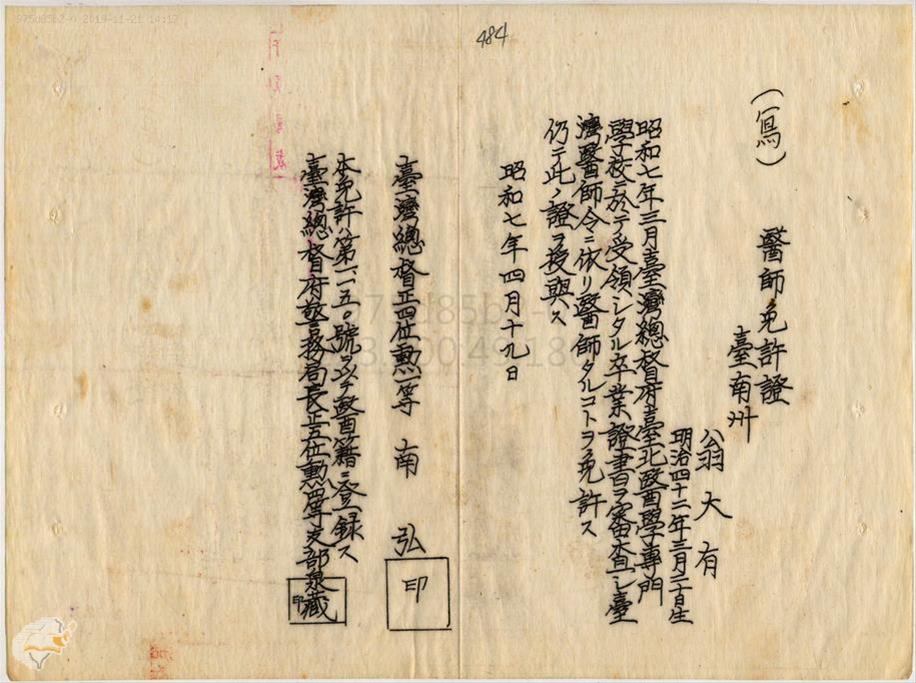 975d85b2-n 2019-11-21 14:17
484
(寫)
醫師免許證
臺南州
翁大有
明治四十二年三月二十日生
昭和七年三月臺灣總督府臺北醫學專門
學校ニ於テ受領シタル卒業證書ヲ審査シ臺
灣醫師令ニ依リ醫師タルコトヲ免許ス
仍テ此ノ證ヲ授與ス
昭和七年四月十九日
臺灣總督正四位勲一等 南 弘 印
本免許ハ第一一五〇號ヲ以テ醫籍ニ登録ス
臺灣總督府警務局長正五位勲四等 支部泉藏 印